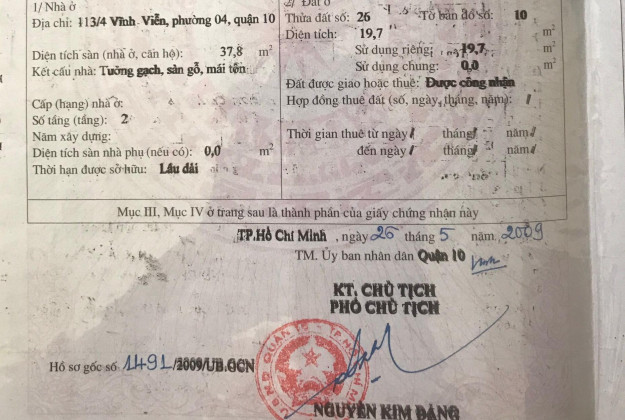 1/ Nhà ở
Địa chỉ: 113/4 Vĩnh Viễn, phường 04, quận 10
Diện tích sàn (nhà ở, căn hộ): 37,8 m²
Kết cấu nhà: Tường gạch, sàn gỗ, mái tôn
Cấp (hạng) nhà ở:
Số tầng (tầng): 2
Năm xây dựng:
Diện tích sàn nhà phụ (nếu có): 0,0 m²
Thời hạn được sở hữu: Lâu dài
2/ Đất ở
Thửa đất số: 26 Tờ bản đồ số: 10
Diện tích: 19,7 m²
Sử dụng riêng: 19,7 m²
Sử dụng chung: 0,0 m²
Đất được giao hoặc thuê: Được công nhận
Hợp đồng thuê đất (số, ngày, tháng, năm): /
Thời gian thuê từ ngày / tháng / năm /
đến ngày / tháng / năm /
Mục III, Mục IV ở trang sau là thành phần của giấy chứng nhận này
TP.Hồ Chí Minh, ngày 26 tháng 5 năm 2009
TM. Ủy ban nhân dân Quận 10
KT. CHỦ TỊCH
PHÓ CHỦ TỊCH
Hồ sơ gốc số: 1491/2009/UB.GCN
NGUYỄN KIM ĐẢNG